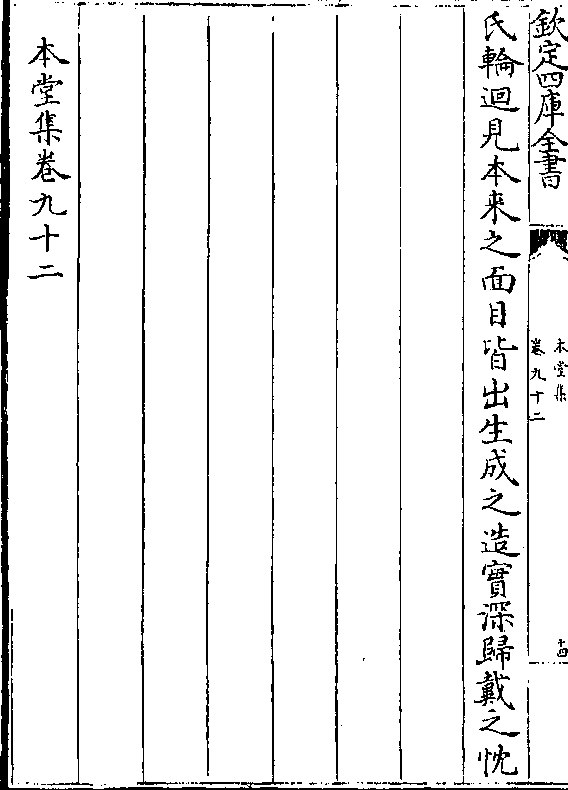 欽定四庫全書
本堂集
卷九十二
十四
氏輪迴見本来之面目皆出生成之造實深歸戴之忱
本堂集卷九十二